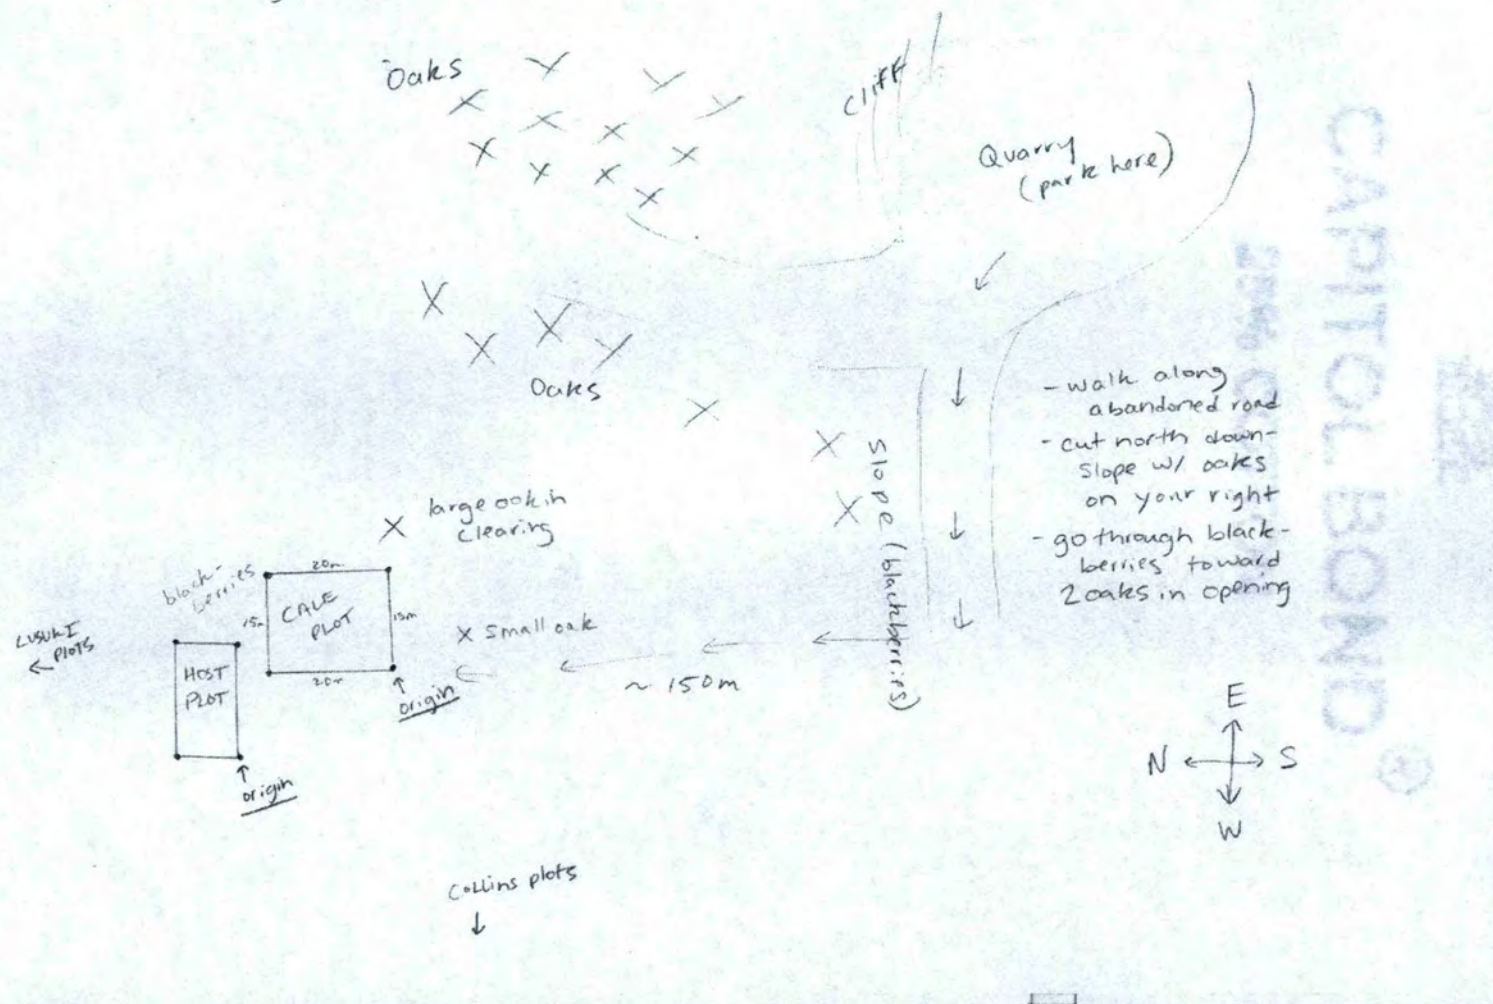 Oaks
Cliff
Quarry
(park here)
Oaks
- walk along
abandoned road
- cut north down-
slope w/ oaks
on your right
- go through black-
berries toward
2 oaks in opening
Slope (blackberries)
large oak in
clearing
black-
berries
20m
15m
CALE
PLOT
15m
20m
small oak
~ 150m
origin
PLOTS
HOST
PLOT
origin
E
N S
W
Collins plots
CAPITOL BOND
®